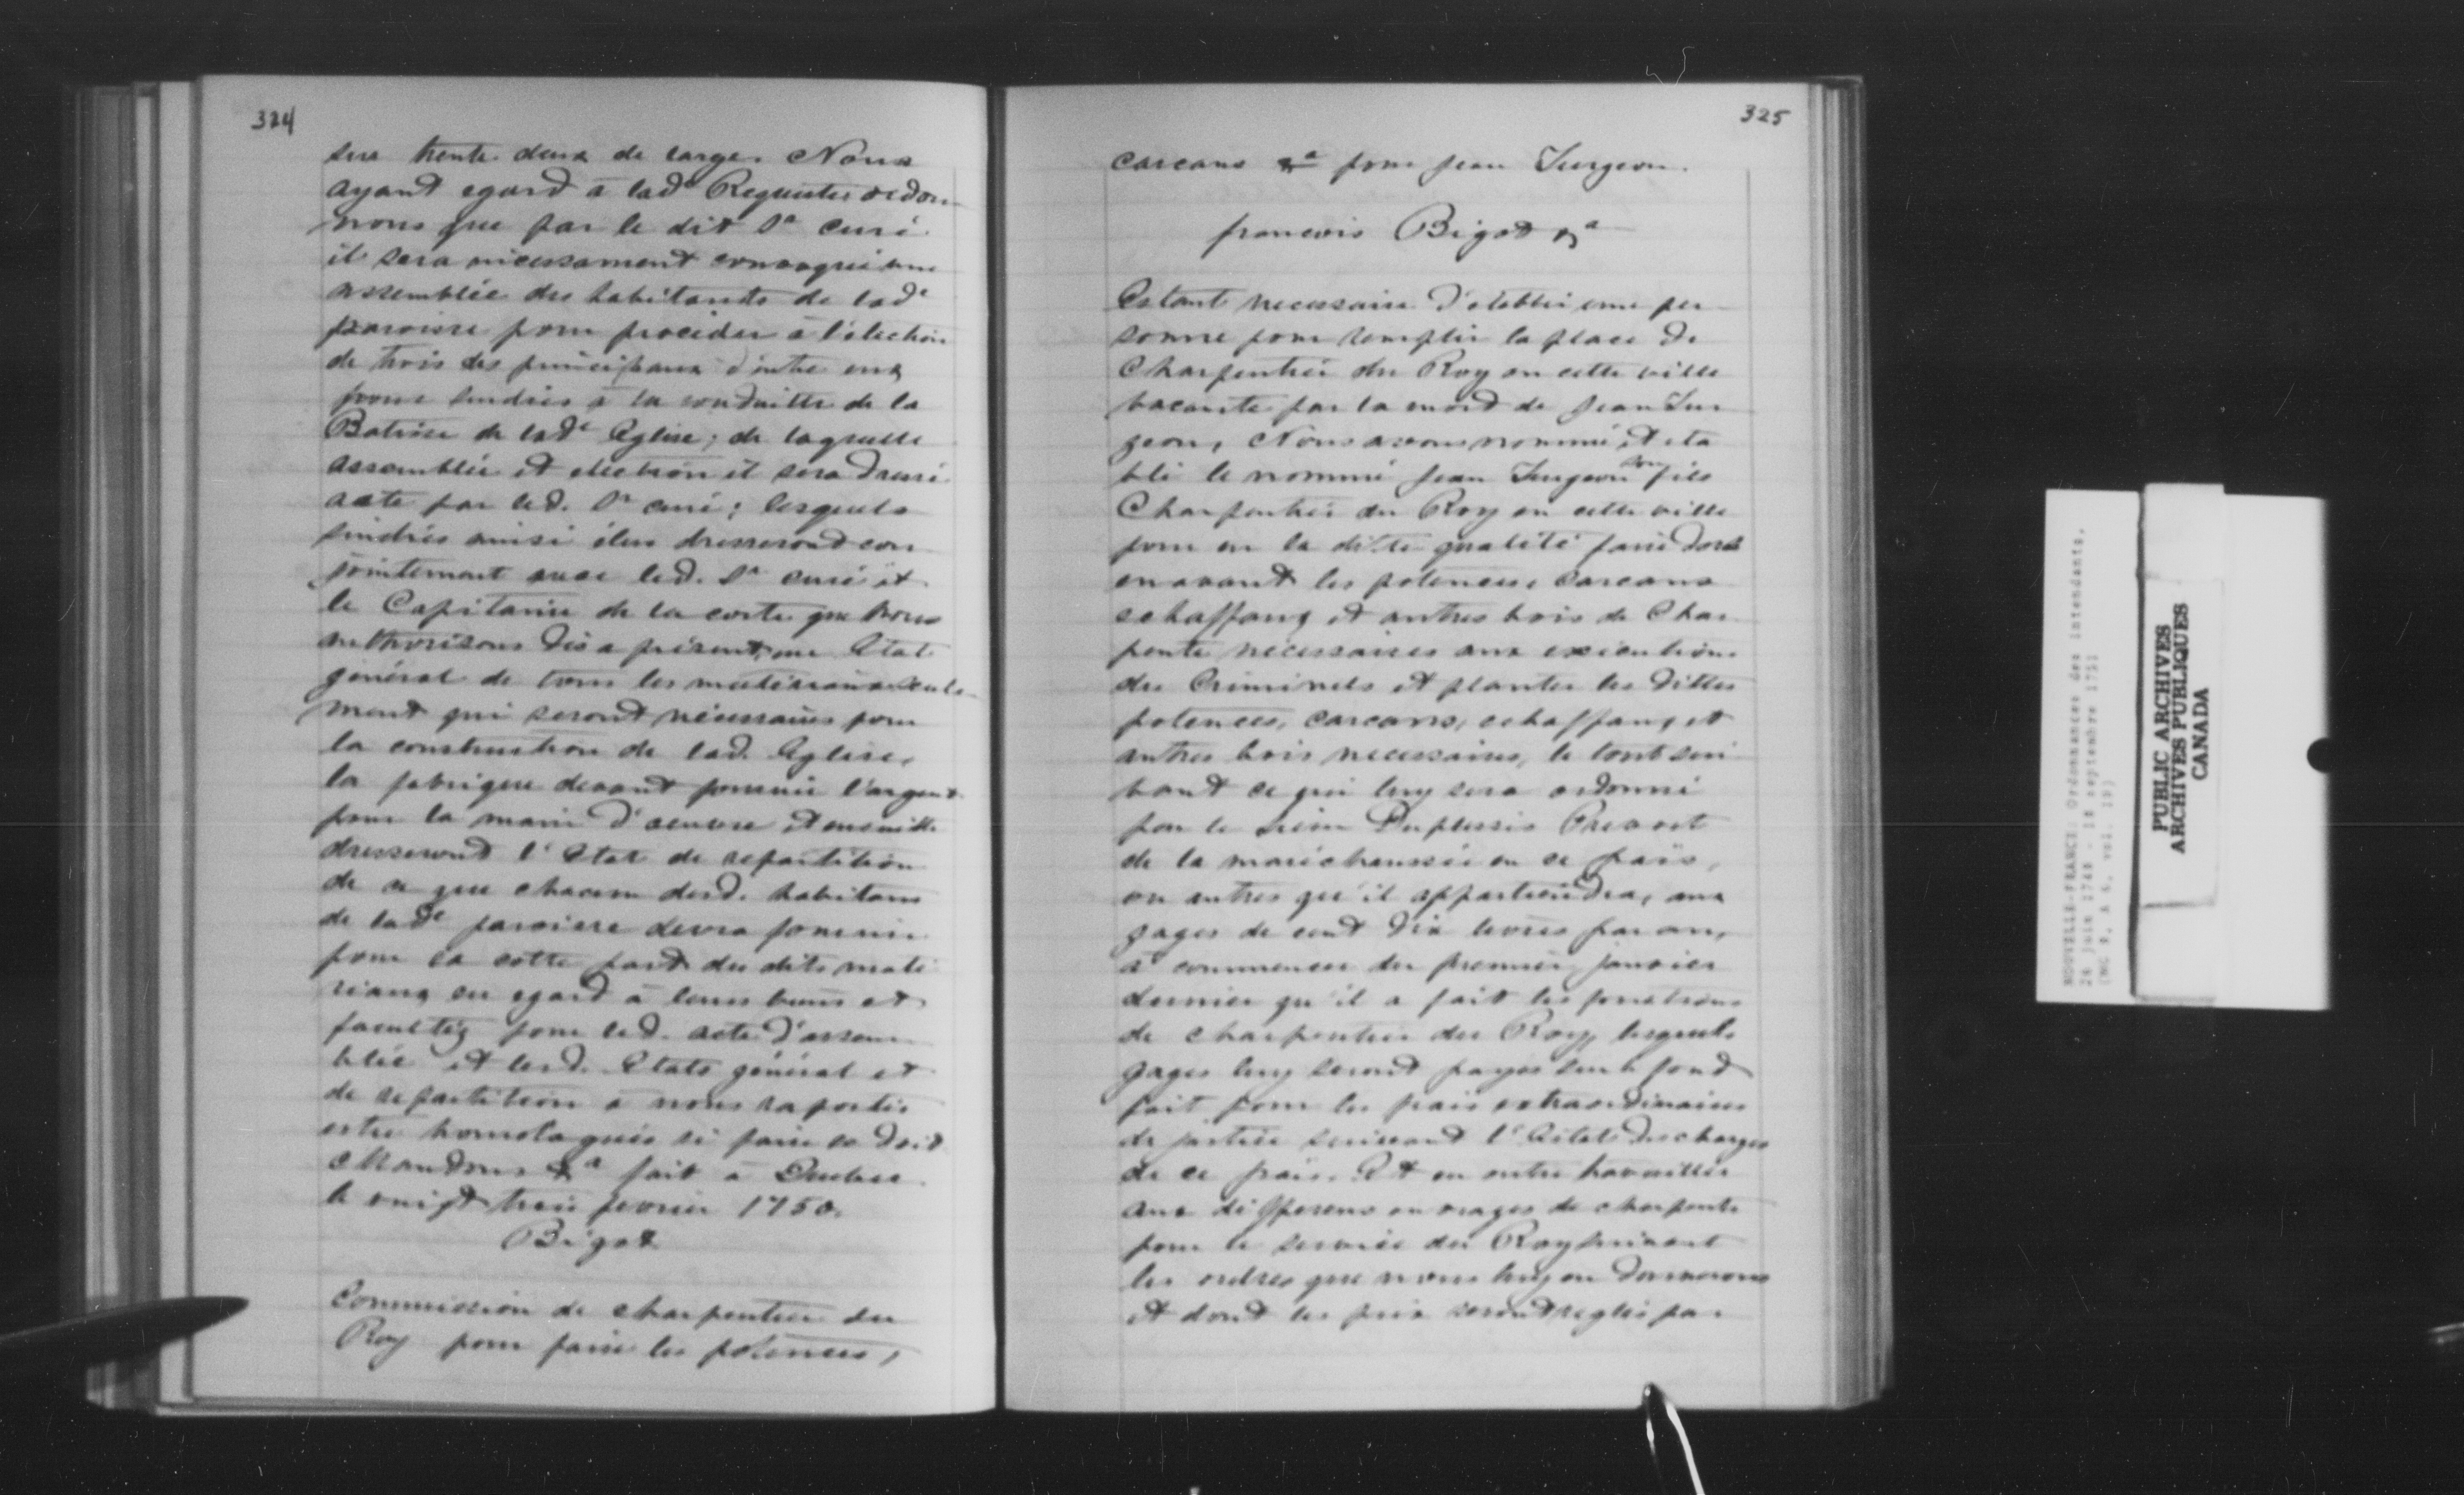 324
sur trente deux de large. Nous
ayant egard a lad^e Requeste ordon-
nons que par le dit S^r curé
il sera incessament convoqué une
assemblée des habitants de lad^e
paroisse pour proceder a l'election
de trois des principaux d'entre eux
pour sindics a la conduitte de la
Batisse de lad^e Eglise; de laquelle
assemblée et election il sera dressé
acte par led. S^r curé; lesquels
sindics ainsi élus dresseront con
jointement avec led. S^r curé et
le Capitaine de la coste que nous
authorisons dès a present, un Etat
général de tous les materiaux seule-
ment qui seront nécessaires pour
la construction de lad. Eglise,
la fabrique devant fournir l'argent
pour la main d'oeuvre et ensuitte
dresseront l'Etat de repartition
de ce que chacun desd. habitans
de lad^e paroisse devra fournir
pour sa cotte part des dits maté
riaux eu egard a leurs biens et
facultéz pour led. acte d'assem-
blée et lesd. Etats général et
de repartition a nous raportés
estre homologués si faire se doit
Mandons &^a fait a Quebec
le vingt trois fevrier 1750.
Bigot
Commission de charpentier du
Roy pour faire les potences,
325
carcans &^a pour Jean Turgeon.
francois Bigot &^a
Estant necessaire d'etablir une per
sonne pour remplir la place de
Charpentier du Roy en cette ville
vacante par la mort de Jean Tur
geon, Nous avons nommé et eta
bli le nommé Jean Turgeon son fils
Charpentier du Roy en cette ville
pour en la ditte qualité faire dores
enavant les potences, carcans
echaffaux et autres bois de Char
pente nécessaires aux executions
des Criminels et planter les dittes
potences, carcans, echaffaux, et
autres bois necessaires, le tout sui
vant ce qui luy sera ordonné
par le sieur Duplessis Prevost
de la maréchaussée en ce païs,
ou autres qu'il appartiendra, aux
gages de cent dix livres par an,
a commencer du premier janvier
dernier qu'il a fait les fonctions
de charpentier du Roy, lesquels
gages luy seront payés sur le fond
fait pour les frais extraordinaires
de justice suivant l'Estat des charges
de ce païs. Et en outre travailler
aux differens ouvrages de charpente
pour le service du Roy suivant
les ordres que nous luy en donnerons
et dont les prix seront reglés par
NOUVELLE-FRANCE: Ordonnances des intendants,
PUBLIC ARCHIVES
ARCHIVES PUBLIQUES
CANADA